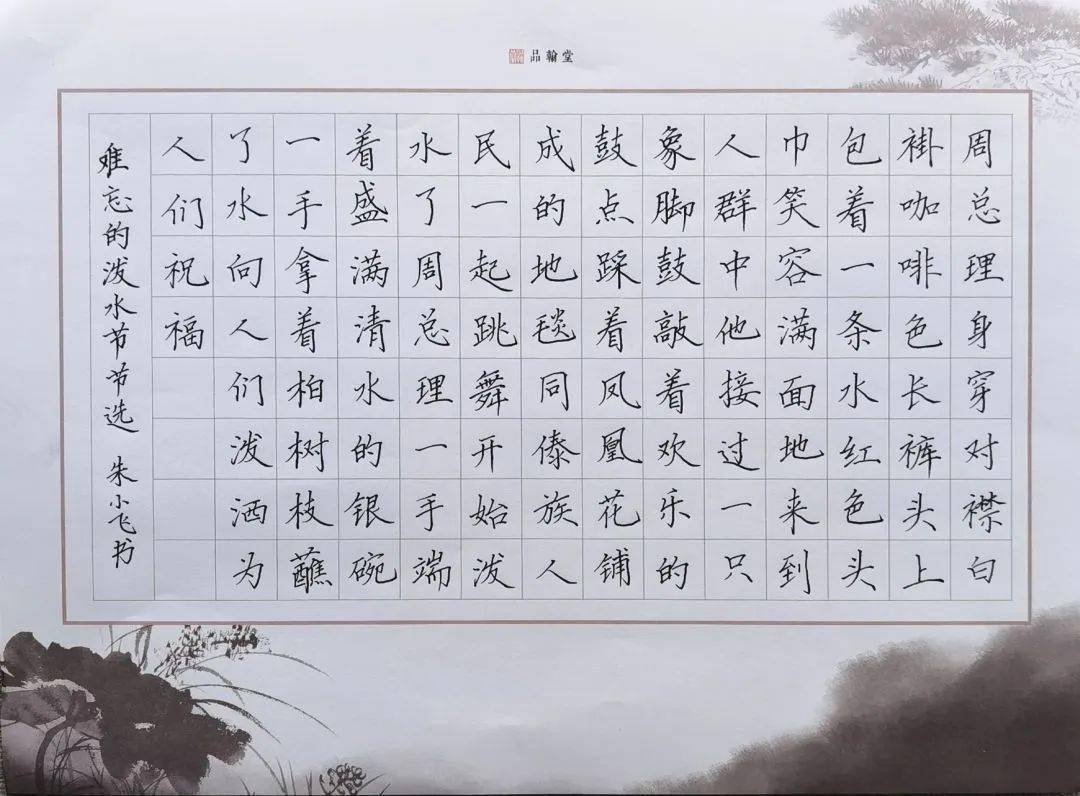 品翰堂
周总理身穿对襟白
褂咖啡色长裤头上
包着一条水红色头
巾笑容满面地来到
人群中他接过一只
象脚鼓敲着欢乐的
鼓点踩着凤凰花铺
成的地毯同傣族人
民一起跳舞开始泼
水了周总理一手端
着盛满清水的银碗
一手拿着柏树枝蘸
了水向人们泼洒为
人们祝福
难忘的泼水节节选 朱小飞书